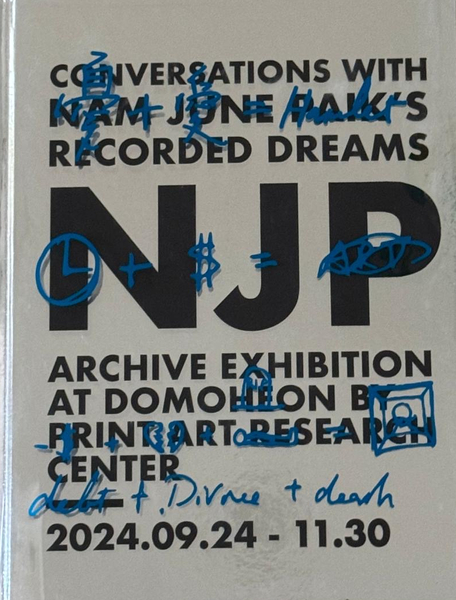 CONVERSATIONS WITH
NAM JUNE PAIK'S
+ =
RECORDED DREAMS
NJP
+ $ =
ARCHIVE EXHIBITION
AT DOMOHEON BY
PRINT ART RESEARCH
CENTER
debt + Divorce + death
2024.09.24 - 11.30